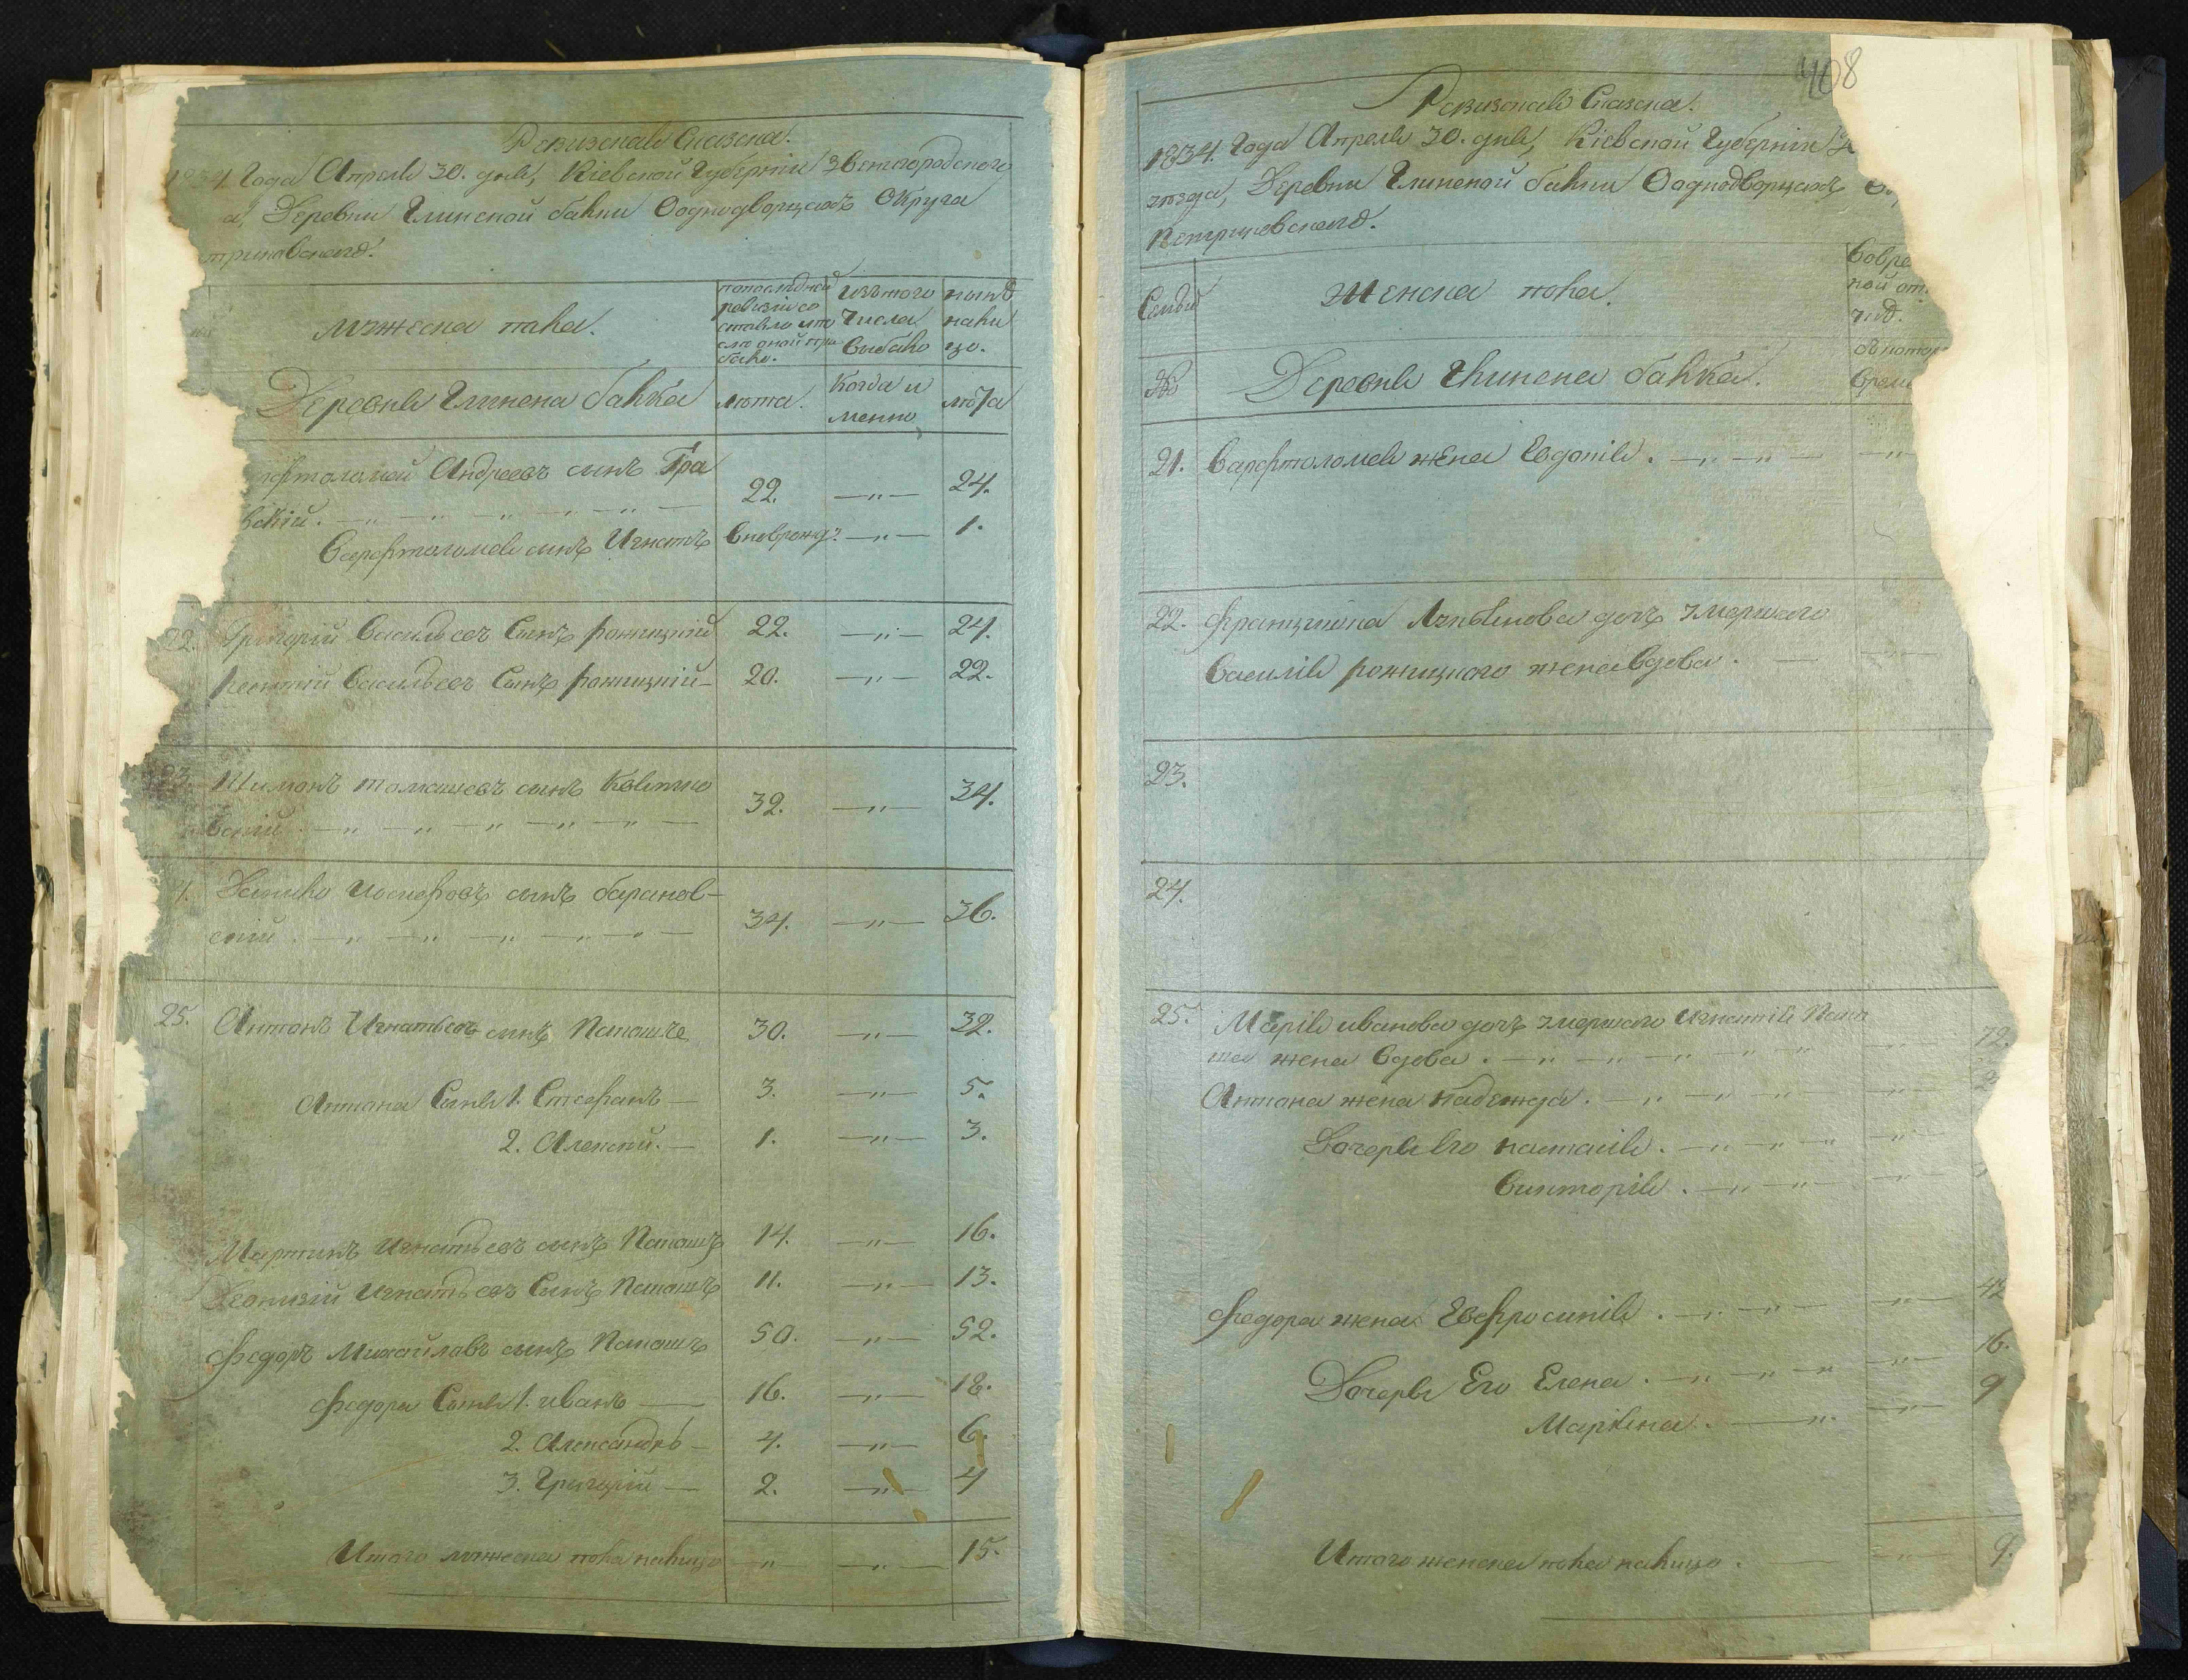 Ревизская Сказка.
1834. Года Апреля 30. дня, Кіевской Губерніи Звенигородского
а, Деревни Глинской балки Ооднодворцахъ Округа
триковского.
мужеска пола.
попоследней
ревизіи со
стояло
изътого
числа
выбыло
ныне
налицо.
Деревня Глинска балка
лета.
когда и
менно
лета
фтоломей Андреевъ сынъ Гра
вскій.
22. — " — 24.
Варфтоломея сынъ Игнатъ вноврожд. — " — 1.
22. Григорій Васильевъ Сынъ рожицкій 22. — " — 24.
Леонтій Васильевъ Сынъ рожицкій 20. — " — 22.
23. Шимонъ томашевъ сынъ
вскій 32. — " — 34.
4. Данило иосифовъ сынъ баранов-
скій 34. — " — 36.
25. Антонъ Игнатьевъ сынъ 30. — " — 32.
Антона Сыны 1. Стефанъ — 3. — " — 5.
2. Алексей. — 1. — " — 3.
Мартинъ Игнатьевъ сынъ 14. — " — 16.
Деонизій Игнатьевъ Сынъ 11. — " — 13.
Федоръ Михайлавъ сынъ 50. — " — 52.
Федора Сыны 1. иванъ — 16. — " — 18.
2. Александръ — 4. — " — 6.
3. Григорій — 2. — " — 4
Итого мужеска пола налицо " — " — 15.
408
Ревизская Сказка.
1834. Года Апреля 30. дня, Кіевской Губерніи
уезда, Деревни Глинской балки Ооднодворцахъ
Петриковского.
Семьи
Женска пола.
Вовре
ной от
луч.
№
Деревня Глинска балка.
съ котор
време
21. Варфтоломея жена Евдокія. — " — " —
22. Францишка дочь умершаго
Василія рожицкого жена вдова. —
23.
24.
25. Марія иванова дочь умершаго Игнатія
жена вдова. — " — " — 72.
Антона жена надежда. — " — " —
Дочеря Его настасія. — " — " —
викторія. — " — " —
Федора жена Евфросинія. — " — " — 42
Дочеря Его Елена. — " — " — 16.
Маріяна. — " — 9
Итого женска пола налицо. 9.